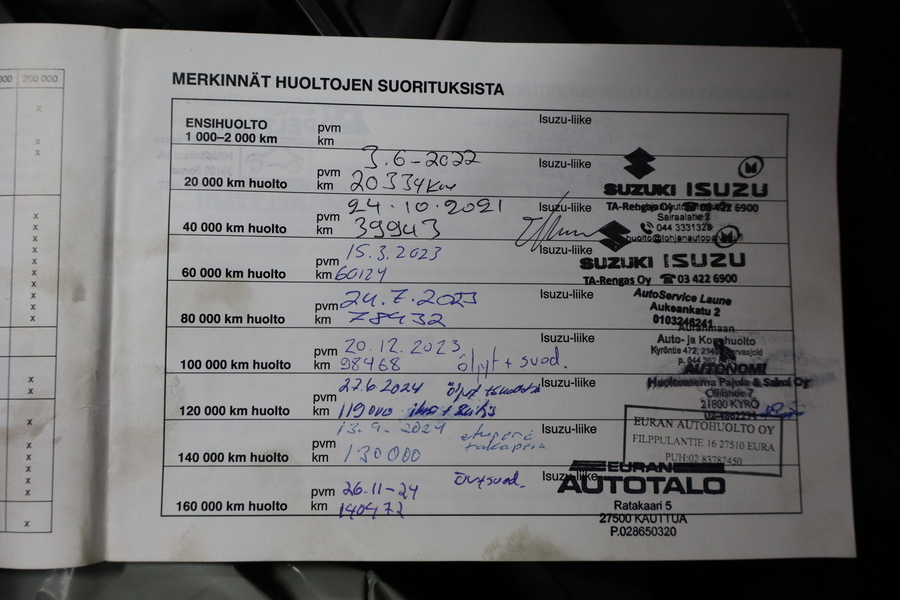 000 200 000
MERKINNÄT HUOLTOJEN SUORITUKSISTA
ENSIHUOLTO
1 000–2 000 km
pvm
km
Isuzu-liike
20 000 km huolto
pvm 3.6-2022
km 20334km
Isuzu-liike
SUZUKI ISUZU
TA-Rengas Oy ☎ 03 422 6900
40 000 km huolto
pvm 24.10.2021
km 39943
Sairaalatie 2
044 3331328
60 000 km huolto
pvm 15.3.2023
km 60124
Isuzu-liike
SUZUKI ISUZU
TA-Rengas Oy ☎ 03 422 6900
80 000 km huolto
pvm 24.7.2023
km 78432
Isuzu-liike
AutoService Laune
Aukeankatu 2
0103246241
100 000 km huolto
pvm 20.12.2023
km 98468 öljyt + suod.
Isuzu-liike
Auranmaan
Auto- ja Konehuolto
AUTONOMI
120 000 km huolto
pvm 27.6.2024
km 119000
Isuzu-liike
Huoltoasema Pajula & Salmi Oy
21800 KYRÖ
140 000 km huolto
pvm 13.9.2024
km 130000
Isuzu-liike
EURAN AUTOHUOLTO OY
FILPPULANTIE 16 27510 EURA
PUH:02 83787450
160 000 km huolto
pvm 26.11-24
km 140472
Isuzu-liike
EURAN
AUTOTALO
Ratakaari 5
27500 KAUTTUA
P.028650320